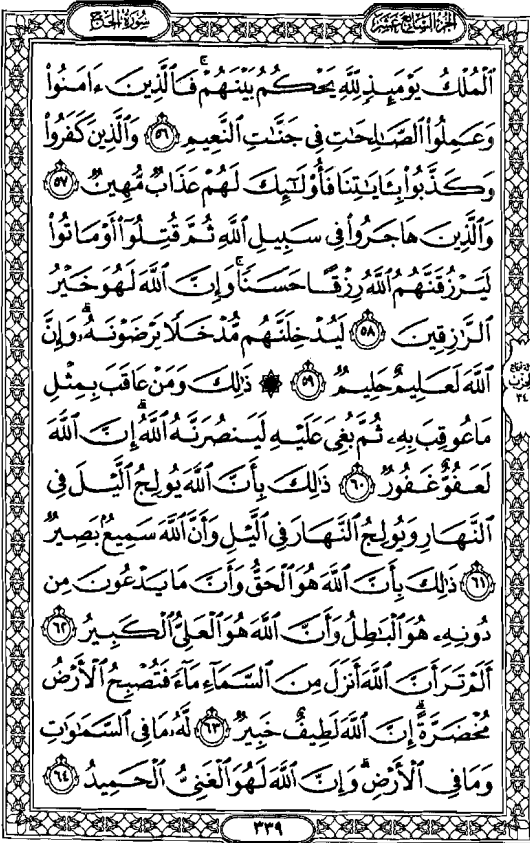 سورة الحج
الجزء السابع عشر
ٱلْمُلْكُ يَوْمَئِذٍ لِّلَّهِ يَحْكُمُ بَيْنَهُمْ ۚ فَٱلَّذِينَ ءَامَنُوا۟
وَعَمِلُوا۟ ٱلصَّـٰلِحَـٰتِ فِى جَنَّـٰتِ ٱلنَّعِيمِ ٥٦ وَٱلَّذِينَ كَفَرُوا۟
وَكَذَّبُوا۟ بِـَٔايَـٰتِنَا فَأُو۟لَـٰٓئِكَ لَهُمْ عَذَابٌ مُّهِينٌ ٥٧
وَٱلَّذِينَ هَاجَرُوا۟ فِى سَبِيلِ ٱللَّهِ ثُمَّ قُتِلُوٓا۟ أَوْ مَاتُوا۟
لَيَرْزُقَنَّهُمُ ٱللَّهُ رِزْقًا حَسَنًا ۚ وَإِنَّ ٱللَّهَ لَهُوَ خَيْرُ
ٱلرَّٰزِقِينَ ٥٨ لَيُدْخِلَنَّهُم مُّدْخَلًا يَرْضَوْنَهُۥ ۗ وَإِنَّ
ٱللَّهَ لَعَلِيمٌ حَلِيمٌ ٥٩ ۞ ذَٰلِكَ وَمَنْ عَاقَبَ بِمِثْلِ
مَا عُوقِبَ بِهِۦ ثُمَّ بُغِىَ عَلَيْهِ لَيَنصُرَنَّهُ ٱللَّهُ ۗ إِنَّ ٱللَّهَ
لَعَفُوٌّ غَفُورٌ ٦٠ ذَٰلِكَ بِأَنَّ ٱللَّهَ يُولِجُ ٱلَّيْلَ فِى
ٱلنَّهَارِ وَيُولِجُ ٱلنَّهَارَ فِى ٱلَّيْلِ وَأَنَّ ٱللَّهَ سَمِيعٌۢ بَصِيرٌ
٦١ ذَٰلِكَ بِأَنَّ ٱللَّهَ هُوَ ٱلْحَقُّ وَأَنَّ مَا يَدْعُونَ مِن
دُونِهِۦ هُوَ ٱلْبَـٰطِلُ وَأَنَّ ٱللَّهَ هُوَ ٱلْعَلِىُّ ٱلْكَبِيرُ ٦٢
أَلَمْ تَرَ أَنَّ ٱللَّهَ أَنزَلَ مِنَ ٱلسَّمَآءِ مَآءً فَتُصْبِحُ ٱلْأَرْضُ
مُخْضَرَّةً ۗ إِنَّ ٱللَّهَ لَطِيفٌ خَبِيرٌ ٦٣ لَّهُۥ مَا فِى ٱلسَّمَـٰوَٰتِ
وَمَا فِى ٱلْأَرْضِ ۗ وَإِنَّ ٱللَّهَ لَهُوَ ٱلْغَنِىُّ ٱلْحَمِيدُ ٦٤
٣٤
٣٣٩